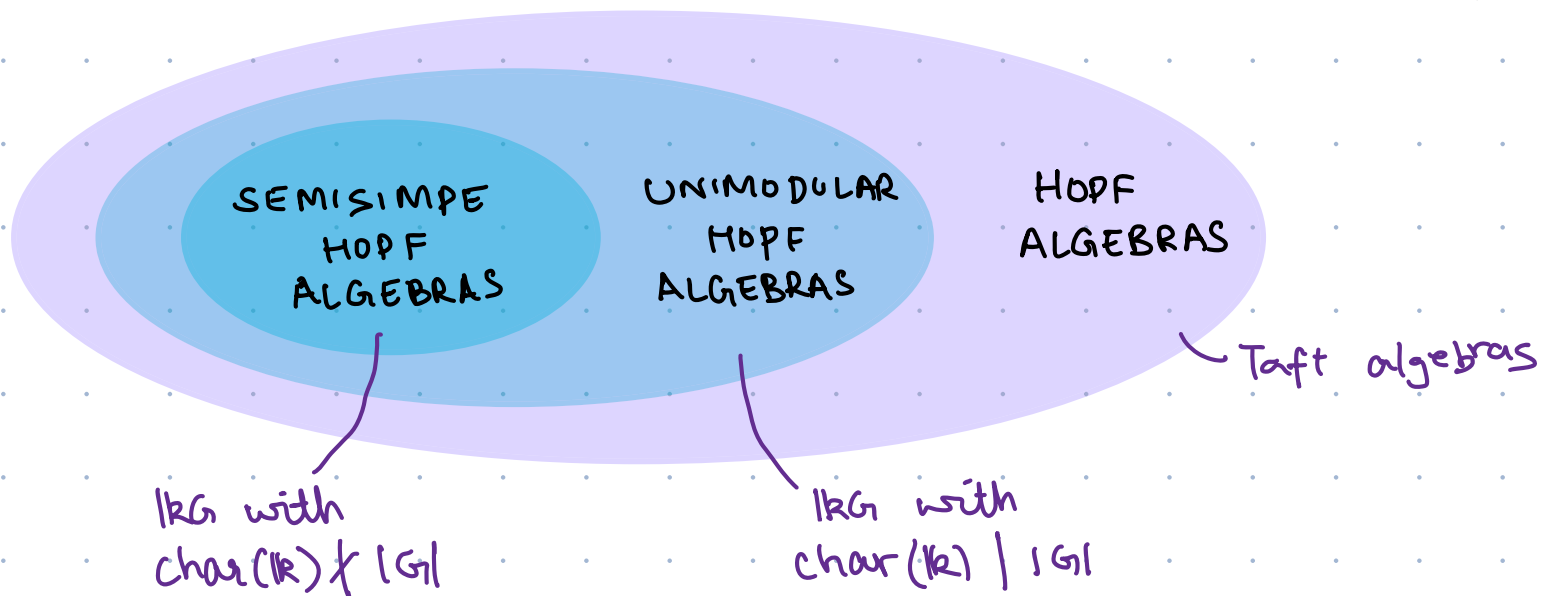 SEMISIMPE
HOPF
ALGEBRAS
UNIMODULAR
HOPF
ALGEBRAS
HOPF
ALGEBRAS
Taft algebras
𝕜G with
char(𝕜) ∤ |G|
𝕜G with
char(𝕜) | |G|